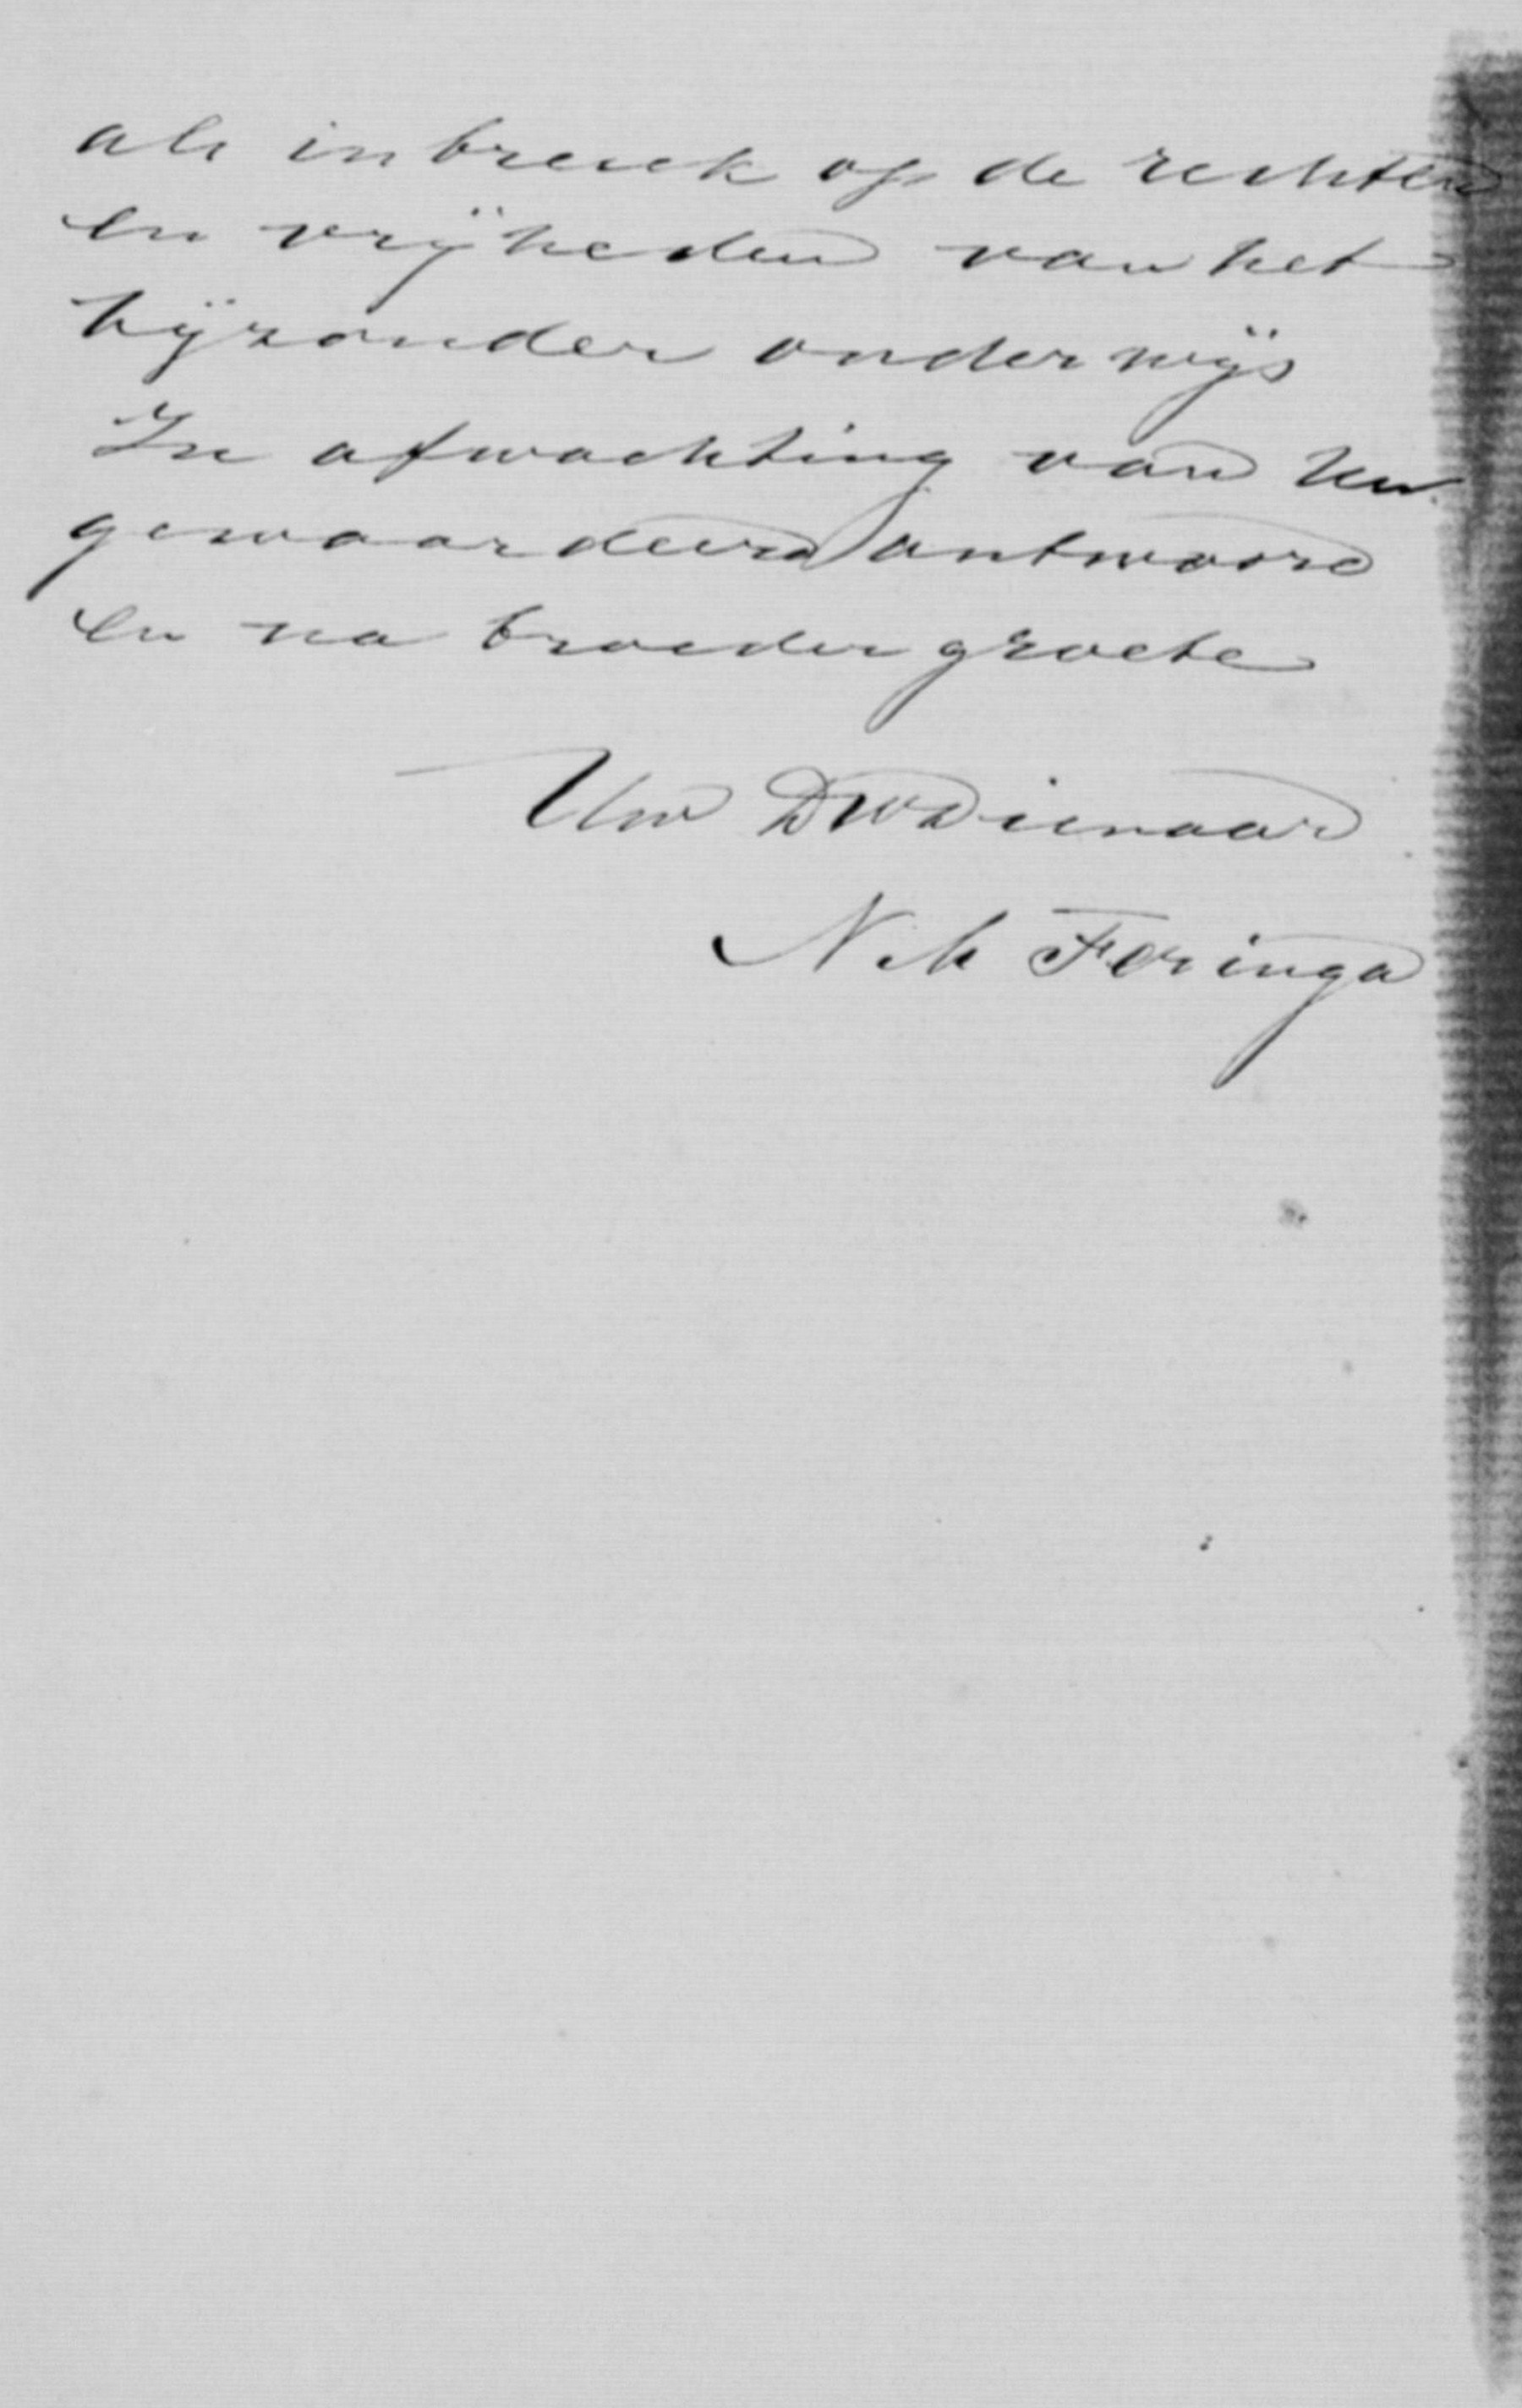 als inbreuk op de rechten
en vrijheden van het
bijzonder onderwijs
In afwachting van Uw
gewaardeerd antwoord
en na broedergroete
Uw DWDienaar
N M Feringa